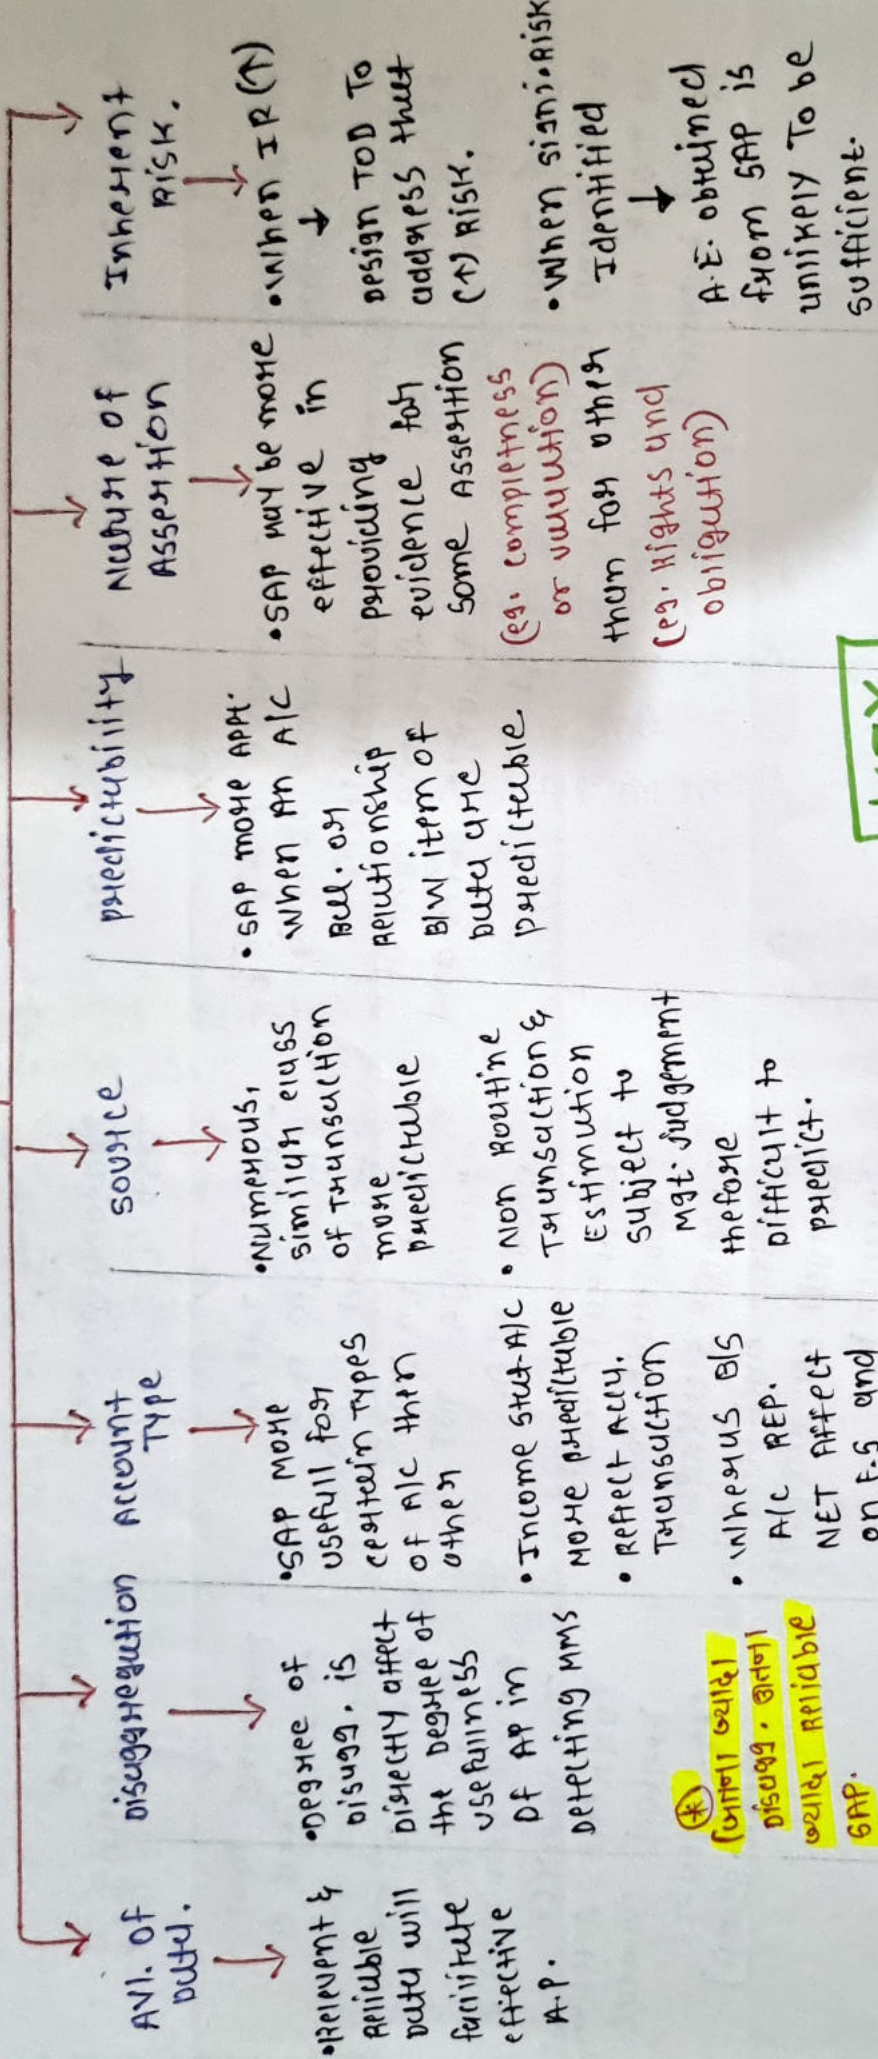 AVI. OF
Data.
•Relevent &
Reliable
Data will
facilitate
effective
A.P.
Disaggregation
•Degree of
Disagg. is
Directly affect
the Degree of
usefullness
OF AP in
Detecting MMS
*
जितना ज्यादा
Disagg. उतना
ज्यादा Reliable
SAP.
Account
Type
•SAP more
usefull for
certain types
of A/c then
other
•Income stat. A/c
more predictable
• Reflect Acu.
Transaction
• Whereas B/S
A/c REP.
NET Affect
on F.S and
Source
•Numerous,
similar class
of transaction
more
predictable
• Non Routine
Transaction &
Estimation
subject to
Mgt. judgement
thefore
Difficult to
predict.
predictability
• SAP more appr.
when an A/c
Bal. or
Relationship
B/W item of
Data are
predictable.
Nature of
Assertion
•SAP may be more
effective in
providing
evidence for
some Assertion
(eg. completness
or valuation)
than for other
(eg. Rights and
obligation)
Inherent
Risk.
•When IR (↑)
↓
Design TOD To
address that
(↑) Risk.
•When signi. Risk
Identified
↓
A.E. obtained
from SAP is
unlikely To be
sufficient.